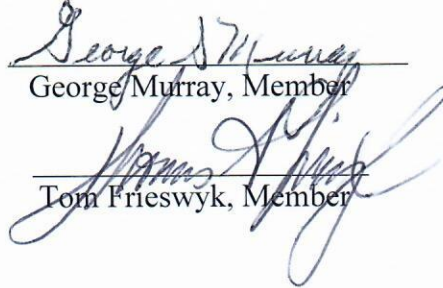 George S Murray
George Murray, Member
Thomas
Tom Frieswyk, Member